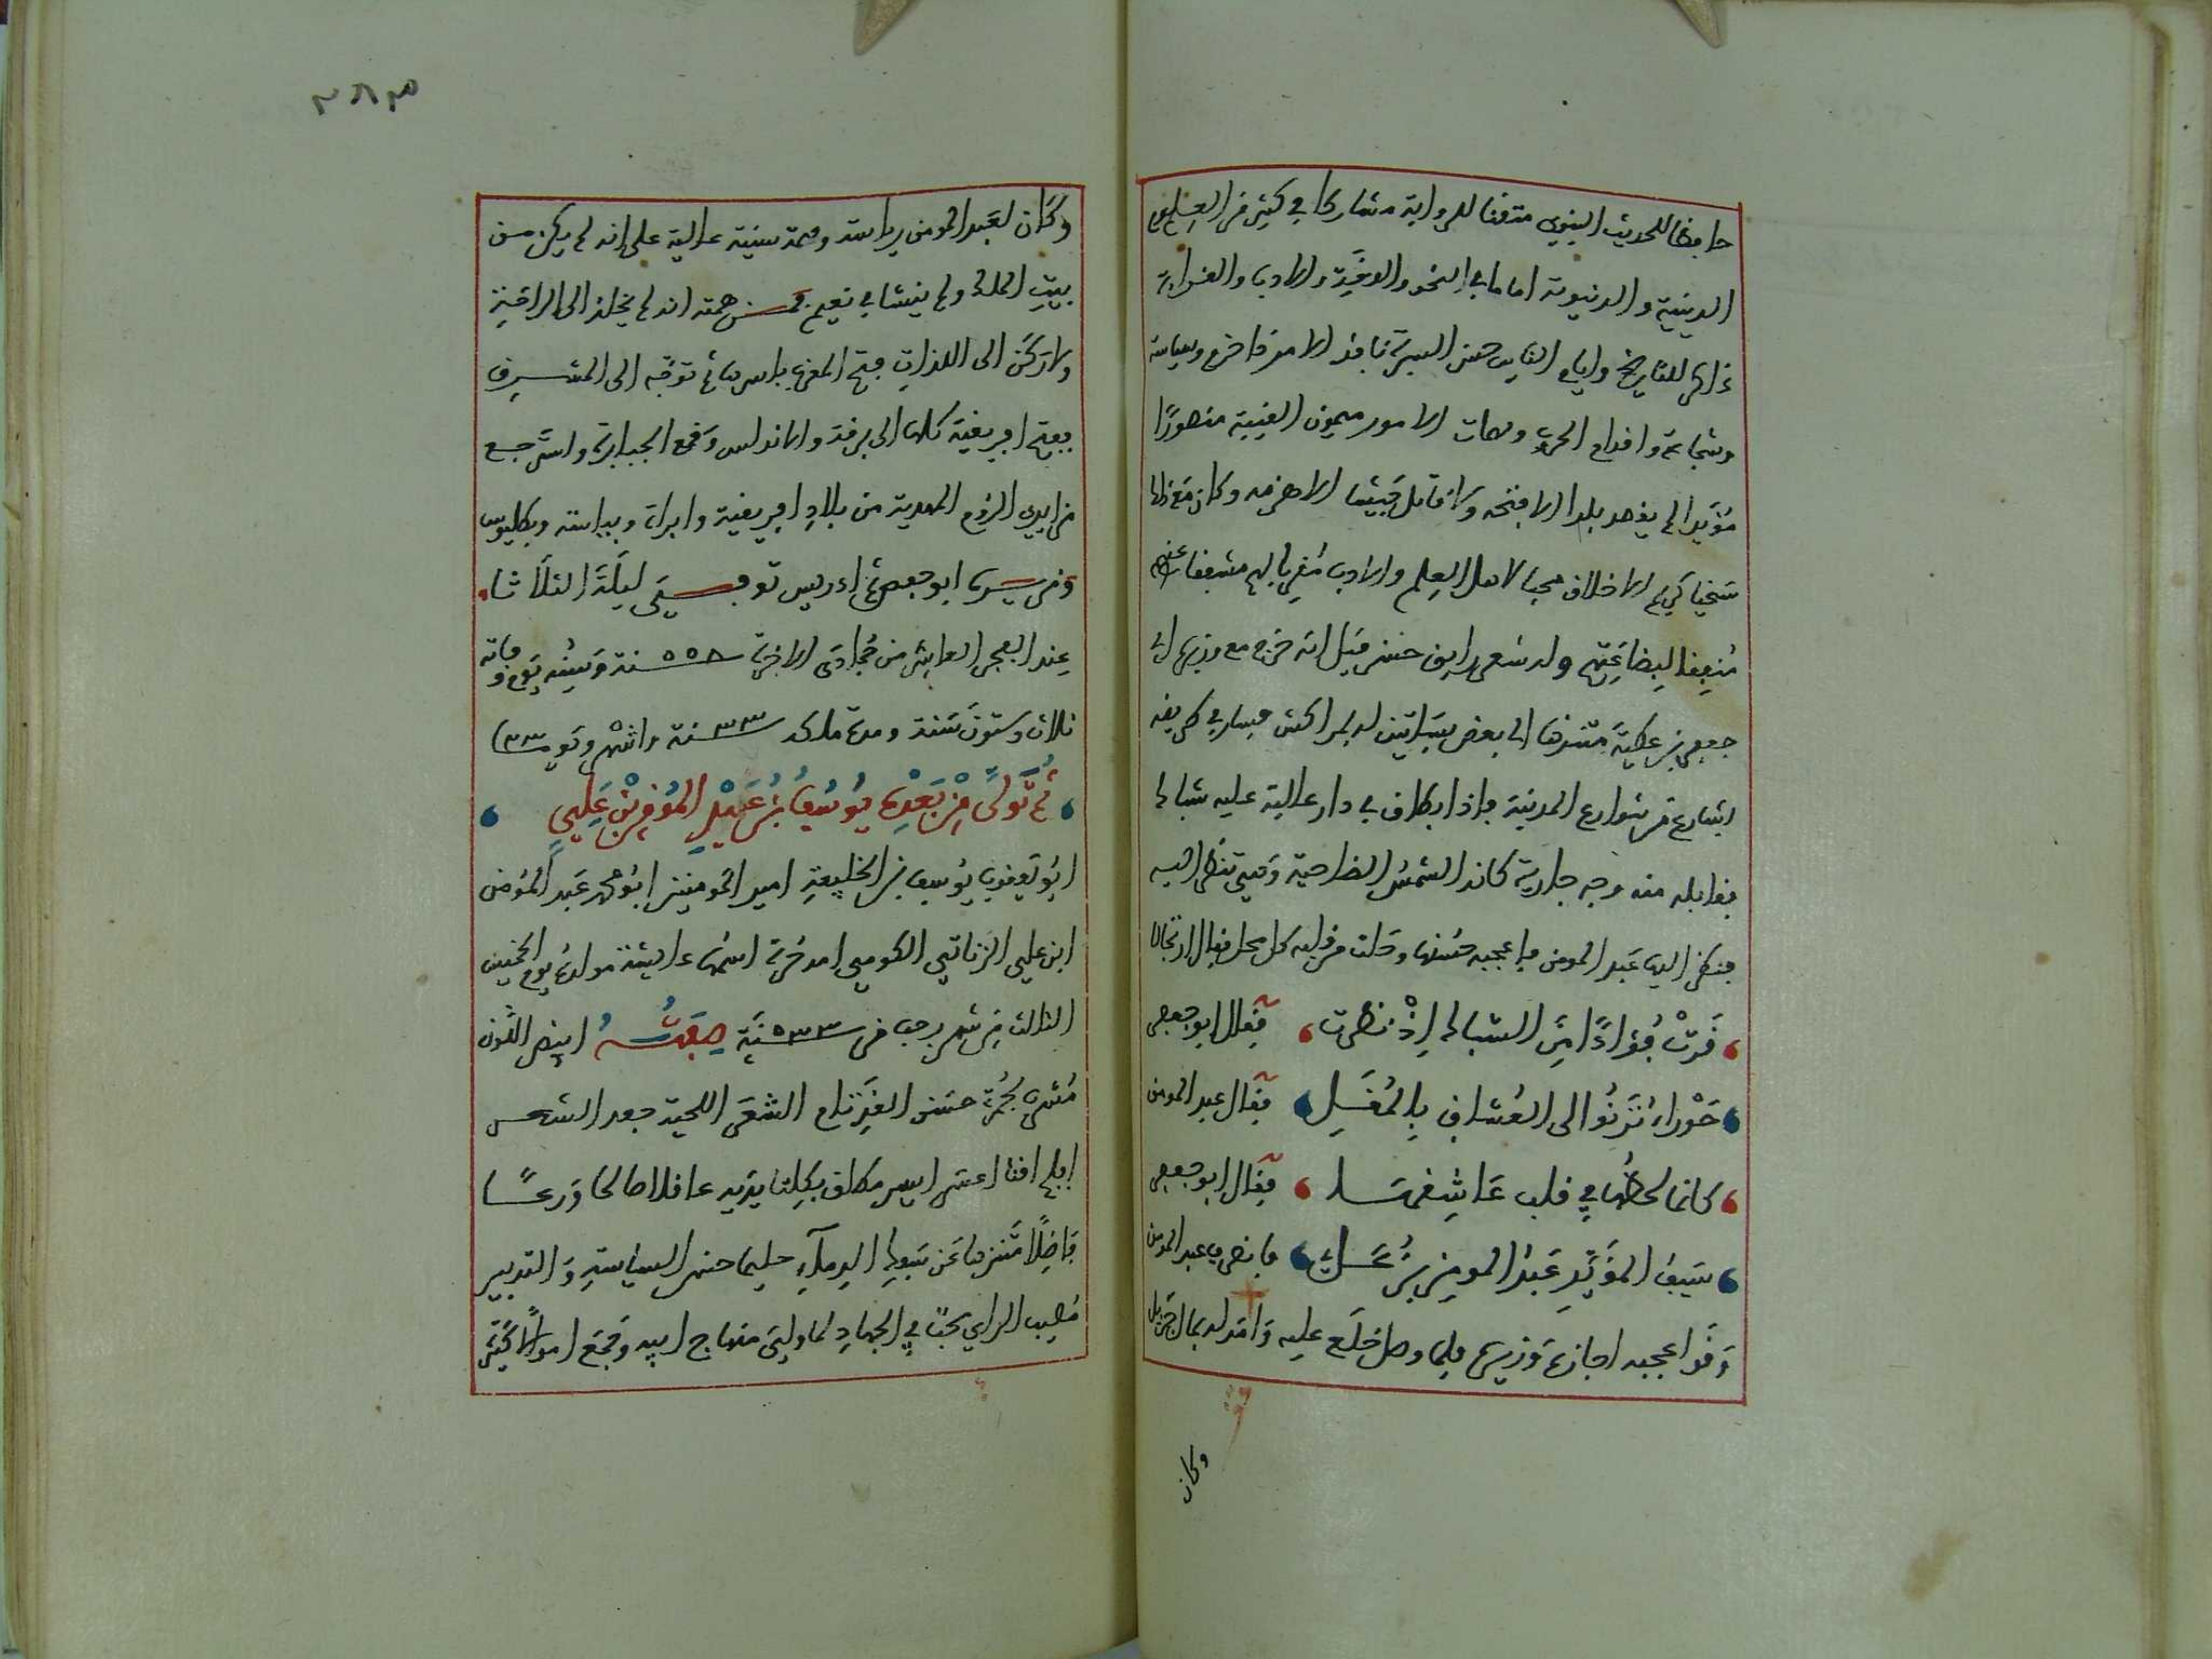 حافظا للحديث النبوي متقنا للرواية مشاركا في كثير من العلوم
الدينية والدنيوية اماما في النحو واللغة والادب والقراءة
ذاكرا للتاريخ وايام الناس حسن السيرة نافذ الامر ذا حزم وسياسة
وشجاعة واقدام الحرب ومهمات الامور ميمون النقيبة منصورًا
مؤيدا لم يقصد بلدا الا فتحه ولا قابل جيشا الا هزمه وكان مع ذلك
سخيا كريم الاخلاق محبا لاهل العلم والادب مقربا لهم مشفقا عنهم
منفقا لبضاعتهم وله شعر رايق حسن قيل انه خرج مع وزيره ابي
جعفر بن عطية متنزها الى بعض بساتين له بمراكش فسار في طريقه
بشارع من شوارع المدينة فاذا بطاق في دار عالية عليه شباك
فقابله منه وجه جارية كانه الشمس الضاحية وهي تنظر اليه
فنظر اليها عبد المومن فاعجبه حسنها وحلت من قلبه كل محل فقال ارتجالا
قدّتْ فؤادًا مِن الشباك إذْ نظرت ، فقال ابو جعفر
حَوْراء تَرْنُوا الى العُشاق بِالمُقَلِ ، فقال عبد المومن
كانما لحظُها في قلب عَاشِقها ، فقال ابو جعفر
سَيفُ المؤَيَّدِ عَبْدُ المومِن بن علي ، فانصرف عبد المومن
وَقد اعجبه اجازة وزيره فلما وصل خلع عليه وامر له بمال جزيل
وكان
٣٨٣
وكان لعَبد المومن رياسة وهمة سنية عالية على انه لم يكن من
بيتِ الملك ولم ينشا في نعيم فمن همته انه لم يخلد الى الراحة
ولا ركن الى اللذات فتح المغرب باسره ثم توجّه الى المشرق
ففتح افريقية كلها الى برقة والاندلس وقمع الجبابرة واسترجع
من ايدي الروم المهدية من بلاد افريقية و وبياسة وبطليوس
ومن سيره ابو جعفر ادريس توفي ليلة الثلاثاء
عند الفجر العاشر من جمادى الاخرة سنة ٥٥٨ وسِنُّه يوم وفاته
ثلاث وستون سَنة ومدة ملكه ٣٣ سنة واشهر
ثُمَّ تَولَّى مِنْ بَعْدِهِ يُوسُفُ بْنُ عَبْدِ المُومِنْ بْن عَلِي
ابُو يَعقوب يُوسف بن الخليفة امير المومنين ابو محمد عبد المُومن
ابن علي الزناتي الكومي امه حُرة اسمها عايشة مولده يوم الخميس
الثالث من شهر رجب من سنة ٥٣٣ صِفَتُهُ ابيض اللَّون
مُشرب بحُمرة حسَن القد تام الشعَر اللحية جعد الشعر
ابلج اقنا يزيد عاقلا صالحا ورعًا
فاضِلًا متنزها عَن سَفك الدمآء حليما حسن السياسة وَالتدبير
مُصيب الراي محبّا في الجهاد لما ولي منهاج ابيه وَجمع اموالًا كثيرة